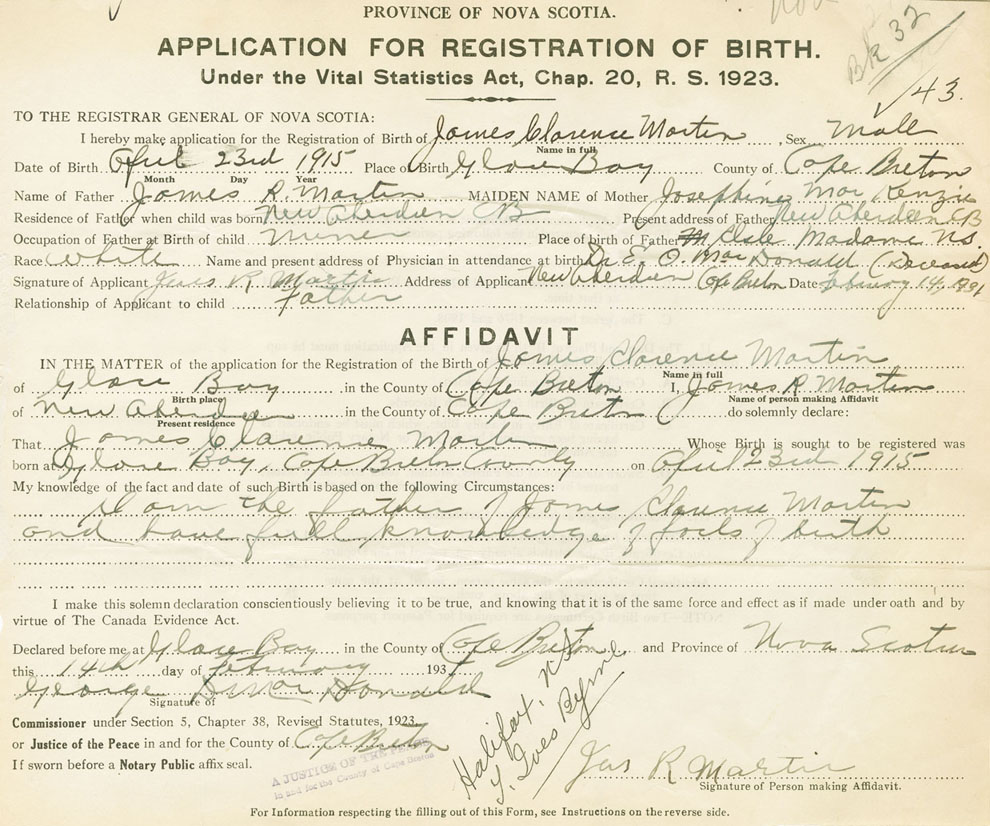 PROVINCE OF NOVA SCOTIA.
Bk 32
APPLICATION FOR REGISTRATION OF BIRTH.
Under the Vital Statistics Act, Chap. 20, R. S. 1923.
43.
TO THE REGISTRAR GENERAL OF NOVA SCOTIA:
I hereby make application for the Registration of Birth of James Clarence Martin, Sex Male
Name in full
Date of Birth April 23rd 1915 Place of Birth Glace Bay County of Cape Breton
Month Day Year
Name of Father James R. Martin MAIDEN NAME of Mother Josephine MacKenzie
Residence of Father when child was born New Aberdeen CB Present address of Father New Aberdeen CB
Occupation of Father at Birth of child Miner Place of birth of Father Isle Madame N.S.
Race White Name and present address of Physician in attendance at birth Dr. E. O. MacDonald (Deceased)
Signature of Applicant Jas R Martin Address of Applicant New Aberdeen Cape Breton Date February 14, 193
Relationship of Applicant to child father
AFFIDAVIT
IN THE MATTER of the application for the Registration of the Birth of James Clarence Martin
Name in full
of Glace Bay in the County of Cape Breton I, James R Martin
Birth place Name of person making Affidavit
of New Aberdeen in the County of Cape Breton do solemnly declare:
Present residence
That James Clarence Martin Whose Birth is sought to be registered was
born at Glace Bay, Cape Breton County on April 23rd 1915
My knowledge of the fact and date of such Birth is based on the following Circumstances:
I am the father of James Clarence Martin
and have full knowledge of facts of birth
I make this solemn declaration conscientiously believing it to be true, and knowing that it is of the same force and effect as if made under oath and by
virtue of The Canada Evidence Act.
Declared before me at Glace Bay in the County of Cape Breton and Province of Nova Scotia
this 14th day of February 193
George D. MacDonald
Signature of
Commissioner under Section 5, Chapter 38, Revised Statutes, 1923
or Justice of the Peace in and for the County of Cape Breton
If sworn before a Notary Public affix seal.
A JUSTICE OF THE PEACE
in and for the County of Cape Breton
Halifax, N.S.
Jas R Martin
Signature of Person making Affidavit.
For Information respecting the filling out of this Form, see Instructions on the reverse side.